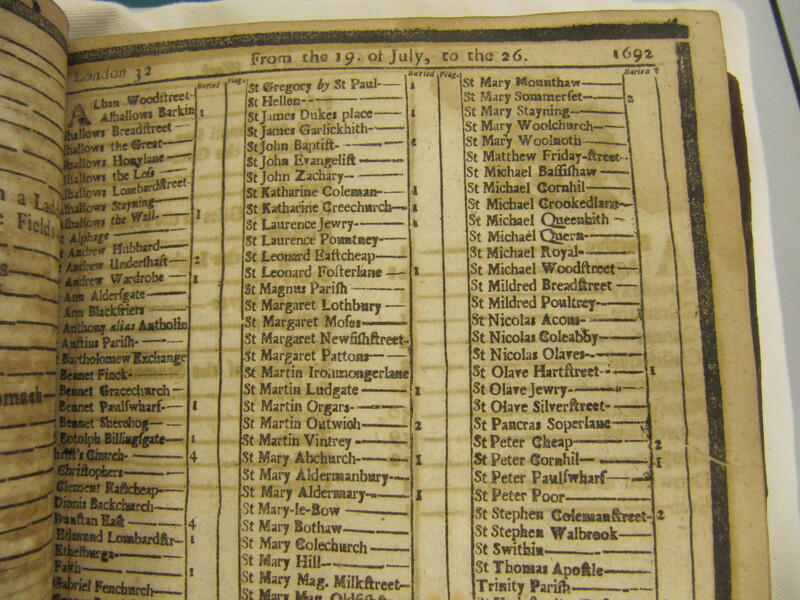 London 32 From the 19. of July, to the 26. 1692
Buried Plag.
Alban Woodſtreet-
Alhallows Barkin 1
lhallows Breadſtreet
lhallows the Great
lhallows Honylane
lhallows the Leſs
lhallows Lombardſtreet
lhallows Stayning
lhallows the Wall 1
t Alphage
t Andrew Hubbard
t Andrew Underſhaft 2
t Andrew Wardrobe 1
Ann Alderſgate
Ann Blackfriers
Anthony alias Antholin
Auſtins Pariſh
Bartholomew Exchange
Bennet Finck
Bennet Gracechurch
Bennet Paulſwharf 1
Bennet Sherehog
Botolph Billingſgate 1
hriſt's Church 4
Chriſtophers
Clement Eaſtcheap
Dionis Backchurch
Dunſtan Eaſt 4
Edmund Lombardſtr 1
Ethelburga
Faith 1
Gabriel Fenchurch
Buried Plag.
St Gregory by St Paul 1
St Hellen
St James Dukes place 1
St James Garlickhith
St John Baptiſt 1
St John Evangeliſt
St John Zachary
St Katharine Coleman 1
St Katharine Creechurch 1
St Laurence Jewry
St Laurence Pountney
St Leonard Eaſtcheap
St Leonard Foſterlane 1
St Magnus Pariſh
St Margaret Lothbury
St Margaret Moſes
St Margaret Newfiſhſtreet
St Margaret Pattons
St Martin Ironmongerlane
St Martin Ludgate 1
St Martin Orgars
St Martin Outwich 2
St Martin Vintrey
St Mary Abchurch 1
St Mary Aldermanbury
St Mary Aldermary 1
St Mary-le-Bow
St Mary Bothaw
St Mary Colechurch
St Mary Hill
St Mary Mag. Milkſtreet
St Mary Mag. Oldfiſh
Buried
St Mary Mounthaw
St Mary Sommerſet 2
St Mary Stayning
St Mary Woolchurch
St Mary Woolnoth
St Matthew Friday-ſtreet
St Michael Baſſiſhaw
St Michael Cornhil
St Michael Crookedlane
St Michael Queenhith
St Michael Quern
St Michael Royal
St Michael Woodſtreet
St Mildred Breadſtreet
St Mildred Poultrey
St Nicolas Acons
St Nicolas Coleabby
St Nicolas Olaves
St Olave Hartſtreet 1
St Olave Jewry
St Olave Silverſtreet
St Pancras Soperlane
St Peter Cheap 2
St Peter Cornhil 1
St Peter Paulſwharf
St Peter Poor
St Stephen Colemanſtreet 2
St Stephen Walbrook
St Swithin
St Thomas Apoſtle
Trinity Pariſh
n a Lad
Fields
omach